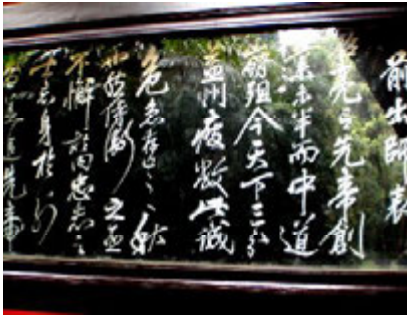 前出師表
臣亮言先帝創
業未半而中道
崩殂今天下三分
益州疲敝此誠
危急存亡之秋
也然侍衛之臣
不懈於内忠志之
士忘身於外
者蓋追先帝